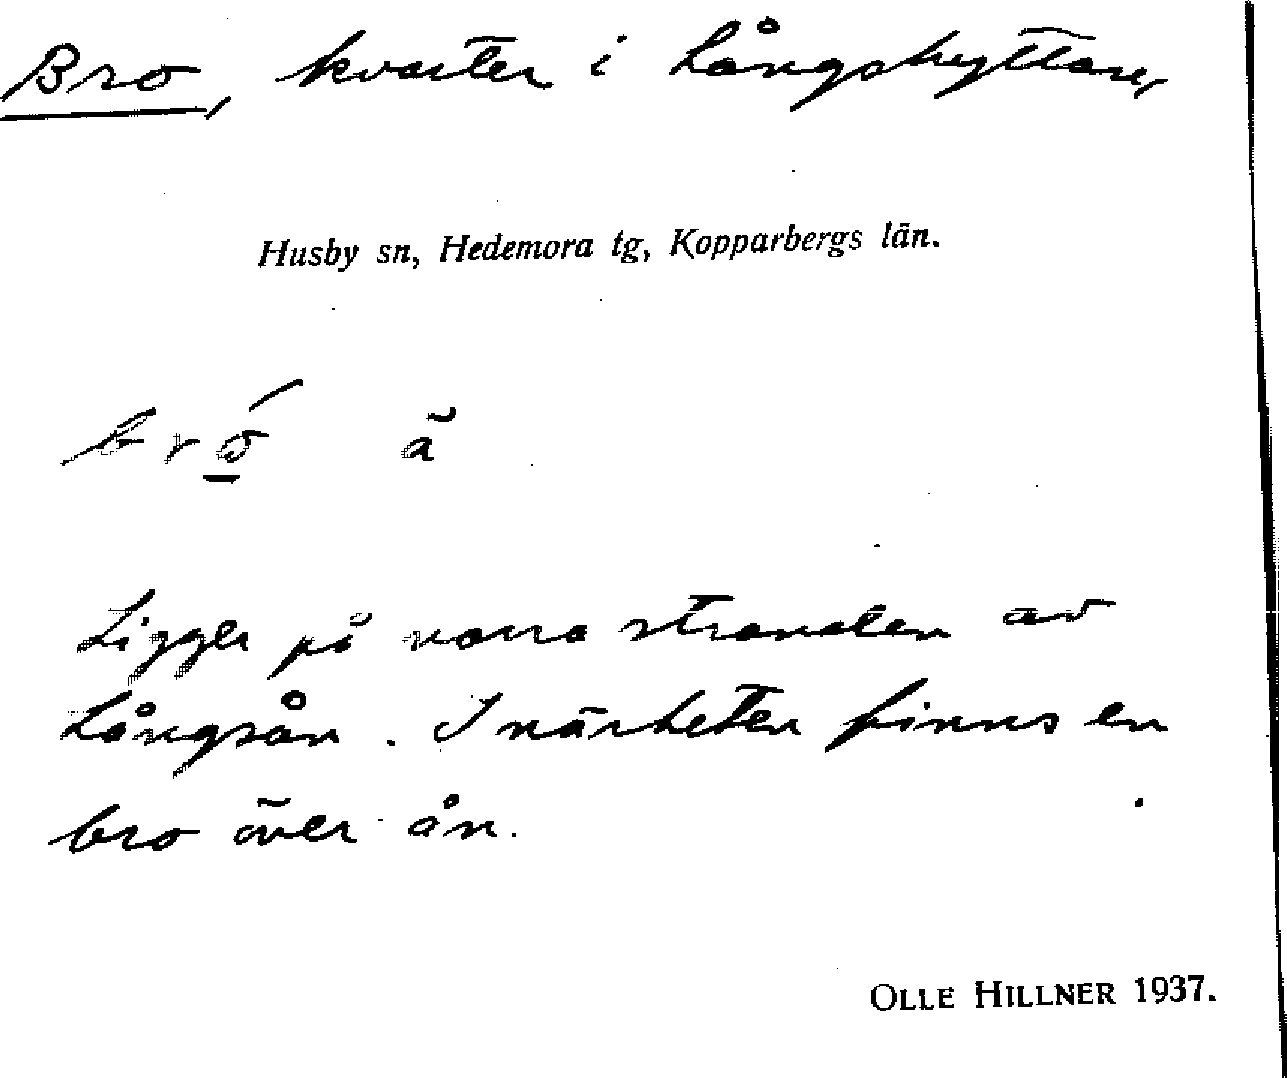 Bro, kvarter i Långshyttan,
Husby sn, Hedemora tg, Kopparbergs län.
bró ä
Ligger på norra stranden av
Långsån. I närheten finns en
bro över ån.
OLLE HILLNER 1937.